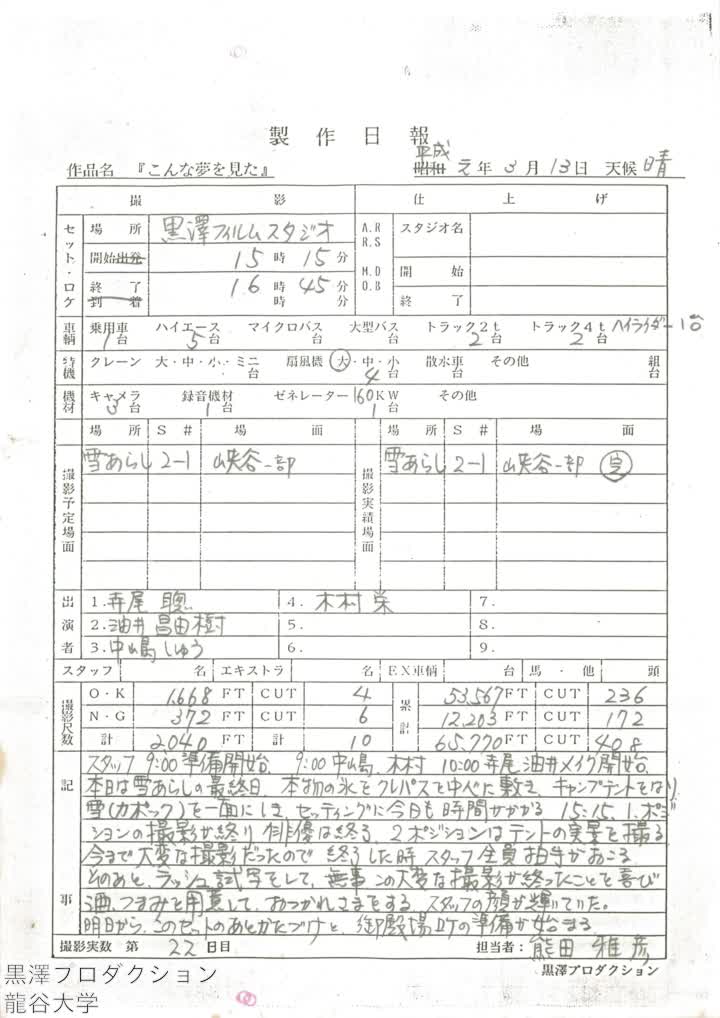 製作日報
作品名 『こんな夢を見た』 昭和 平成 元年 3月 13日 天候 晴
撮影 仕上げ
セット・ロケ 場所 黒澤フィルムスタジオ A.R R.S スタジオ名
開始出発 15時 15分 M.D D.B 開始
終了 到着 16時 45分 終了
時 分
車輌 乗用車 1台 ハイエース 5台 マイクロバス 台 大型バス 台 トラック2t 2台 トラック4t 2台 ハイライダー 1台
特機 クレーン 大・中・小・ミニ 台 扇風機 大・中・小 4台 散水車 台 その他 組 台
機材 キャメラ 3台 録音機材 1台 ゼネレーター 160KW 1台 その他
場所 S# 場面 場所 S# 場面
撮影予定場面 雪あらし 2-1 峡谷一部 撮影実績場面 雪あらし 2-1 峡谷一部 完
出演者 1. 寺尾 聰 4. 木村 栄 7.
2. 油井 昌由樹 5. 8.
3. 中嶋 しゅう 6. 9.
スタッフ 名 エキストラ 名 EX車輌 台 馬・他 頭
撮影尺数 O・K 1,668 FT CUT 4 累計 53,567 FT CUT 236
N・G 372 FT CUT 6 12,203 FT CUT 172
計 2,040 FT 計 10 65,770 FT CUT 408
記事 スタッフ 9:00 準備開始、 9:00 中嶋、木村 10:00 寺尾 油井メイク開始、
本日は雪あらしの最終日、本物の氷をクレパスと中ぐに敷き、キャンプテントをはり
雪(カポック)を一面にしき、セッティングに今日も時間がかかる 15:15、1.ポジ
ションの撮影が終り 俳優は終る、2ポジションはテントの実景を撮る
今まで大変な撮影だったので 終了した時 スタッフ全員拍手がおこる
そのあと、ラッシュ試写をして、無事この大変な撮影が終ったことを喜び
酒、つまみを用意して、おつかれさまをする、スタッフの顔が輝いていた。
明日から、このセットのあとかたづけと、御殿場ロケの準備が始まる
撮影実数 第 22 日目 担当者: 熊田 雅彦
黒澤プロダクション
黒澤プロダクション
龍谷大学